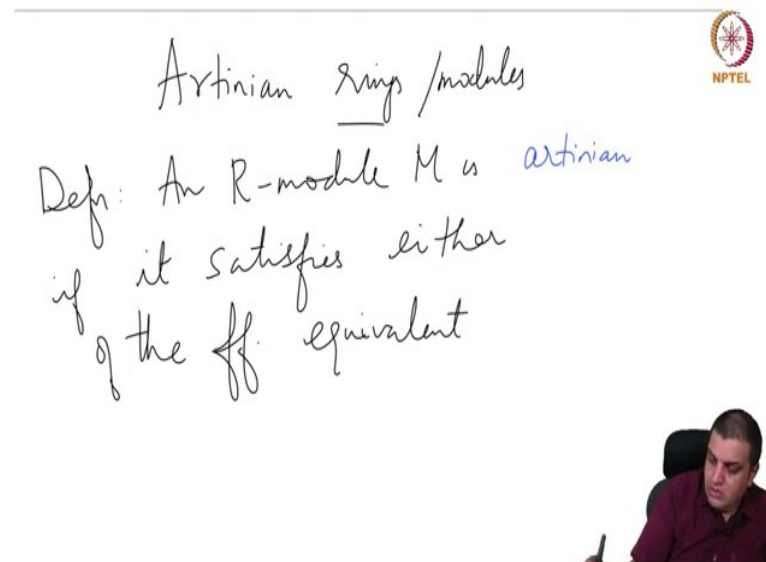 NPTEL
Artinian rings/modules
Defn: An R-module M is artinian
if it satisfies either
of the ff. equivalent